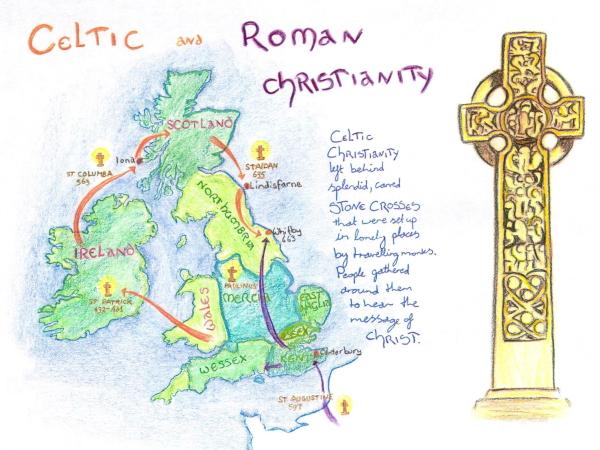 CELTIC and ROMAN
CHRISTIANITY
SCOTLAND
Iona
ST COLUMBA
563
ST AIDAN
635
Lindisfarne
NORTHUMBRIA
Whitby
663
IRELAND
ST PATRICK
432-461
WALES
PAULINUS
MERCIA
EAST
ANGLIA
ESSEX
WESSEX
KENT
Canterbury
ST AUGUSTINE
597
CELTIC
CHRISTIANITY
left behind
splendid, carved
STONE CROSSES
that were set up
in lonely places
by travelling monks.
People gathered
around them
to hear the
message of
CHRIST.